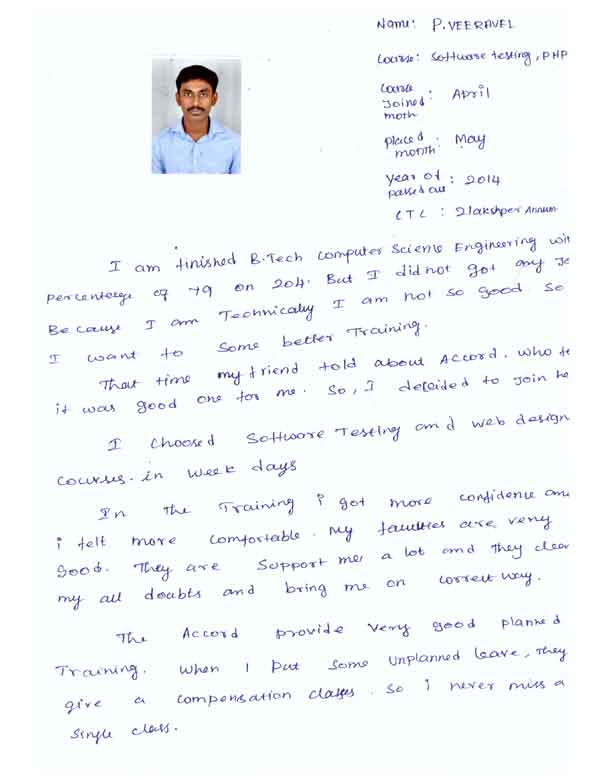 Name: P.VEERAVEL
Course: Software testing, PHP
Course
Joined : April
moth
placed : May
month
year of : 2014
passed out
CTC : 2lakshper Annum
I am finished B.Tech Computer Science Engineering wit
percentage of 79 on 204. But I did not got any Jo
Because I am Technically I am not so good so
I want to some better Training.
That time my friend told about Accord. who te
it was good one for me. So, I decided to join he
I Choosed Software Testing and web design
courses. in week days
In the Training i got more confidence and
i felt more comfortable. My faculties are very
good. They are support me a lot and they clear
my all doubts and bring me on correct way.
The Accord provide very good planned
Training. When I put some unplanned leave, they
give a compensation classes. So i never miss a
single class.